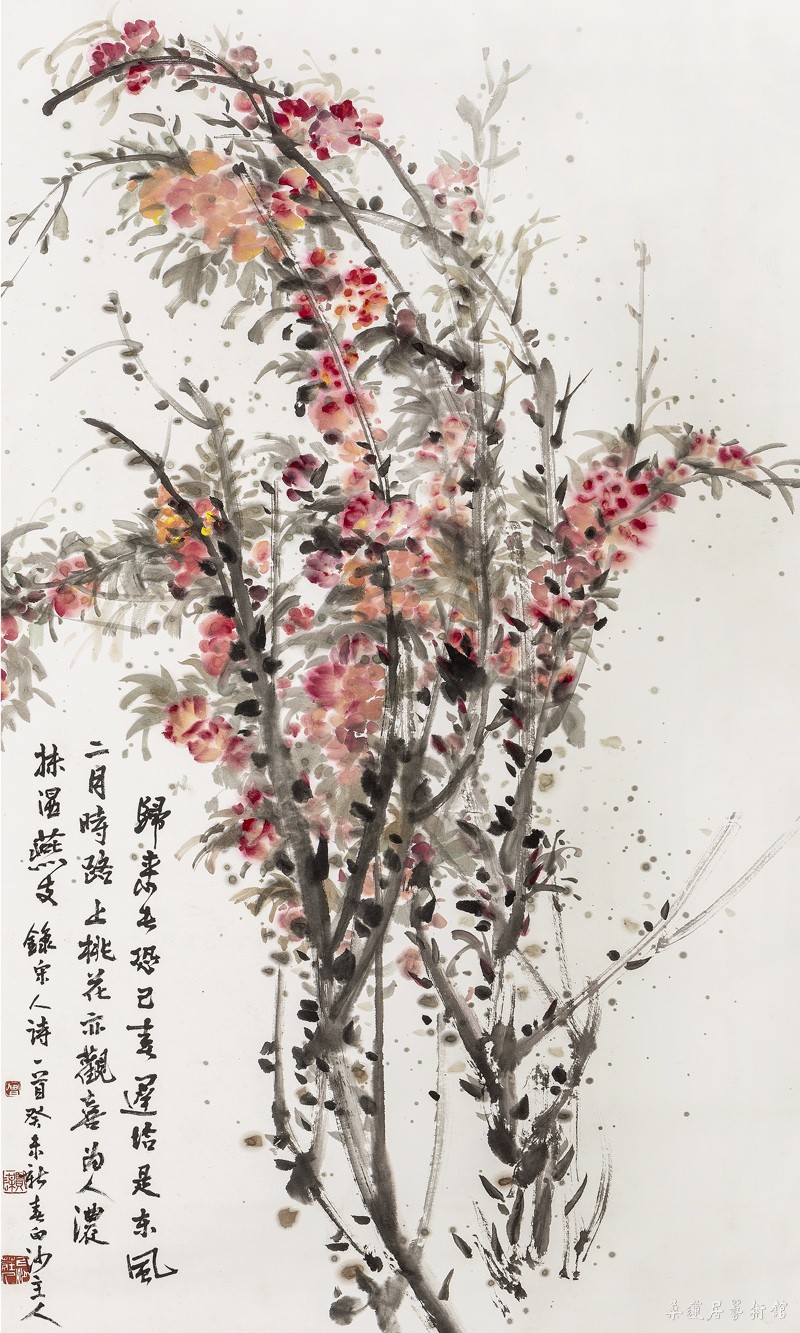 歸來長恐已春遲恰是東風
二月時路上桃花亦觀喜為人濃
抹湿燕支 錄宋人诗一首癸未新春白沙主人
桑蓮居藝術館